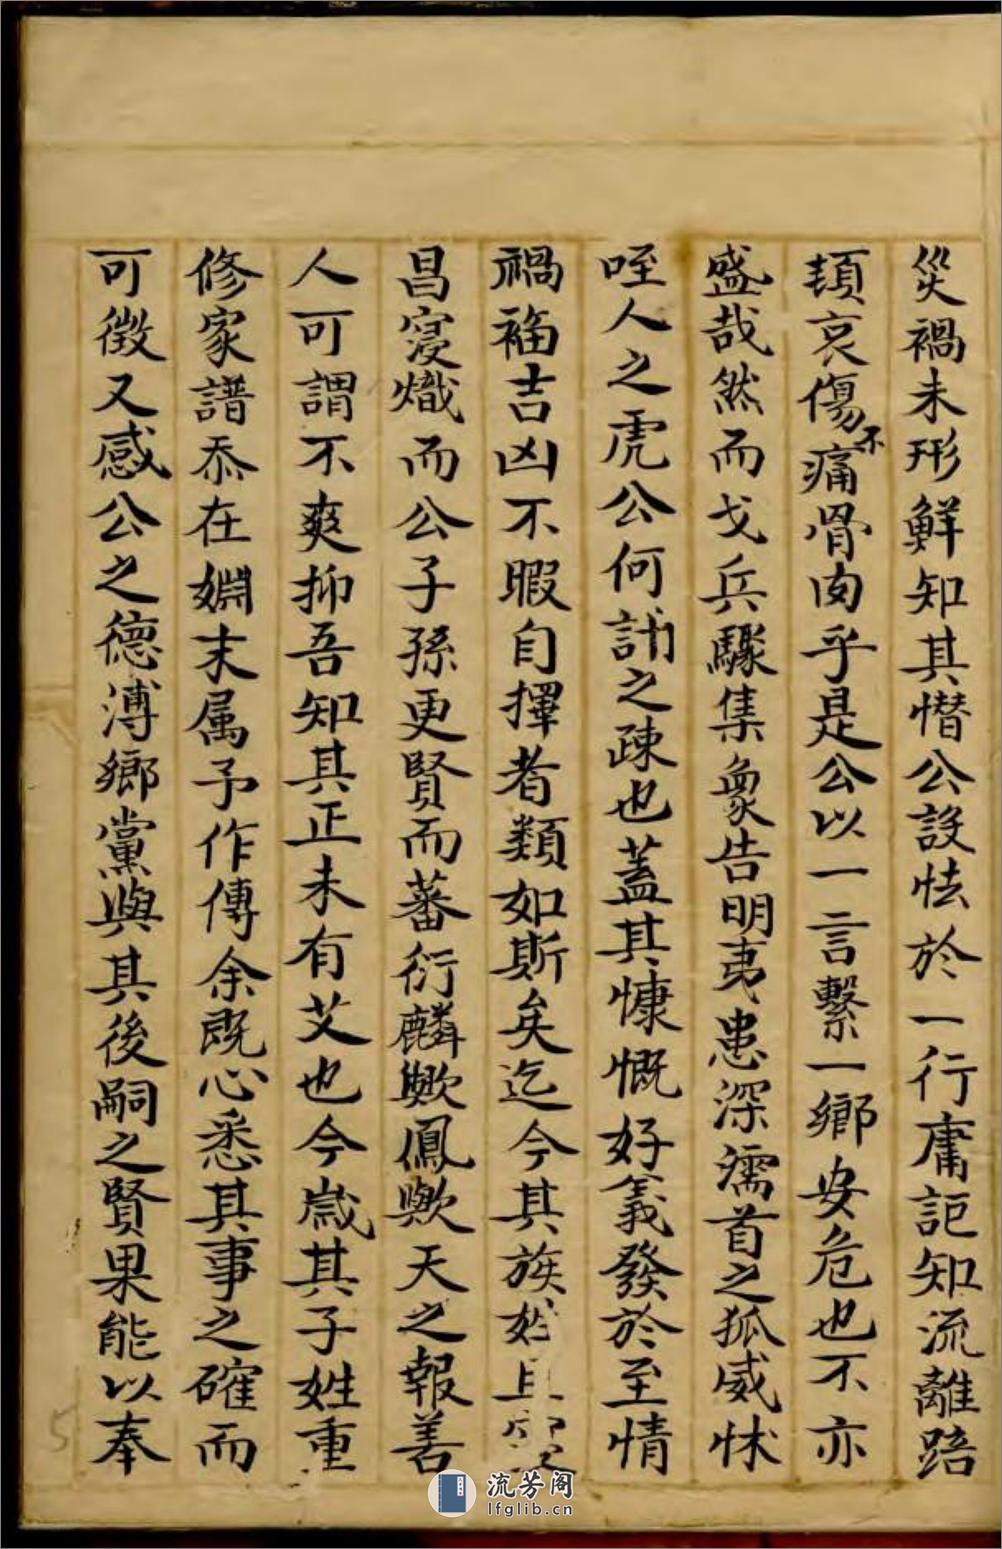 災禍未形鮮知其憯公設怯於一行庸詎知流離踣
頓哀傷不痛骨肉乎是公以一言繫一鄉安危也不亦
盛哉然而戈兵驟集象告明夷患深濡首之狐威怵
咥人之虎公何計之疎也蓋其慷慨好義發於至情
禍福吉凶不暇自擇者類如斯矣迄今其族姓
昌寖熾而公子孫更賢而蕃衍麟歟鳳歟天之報善
人可謂不爽抑吾知其正未有艾也今歲其子姓重
修家譜忝在婣末属予作傳余既心悉其事之確而
可徵又感公之德溥鄉黨與其後嗣之賢果能以奉
5
流芳阁
lfglib.cn